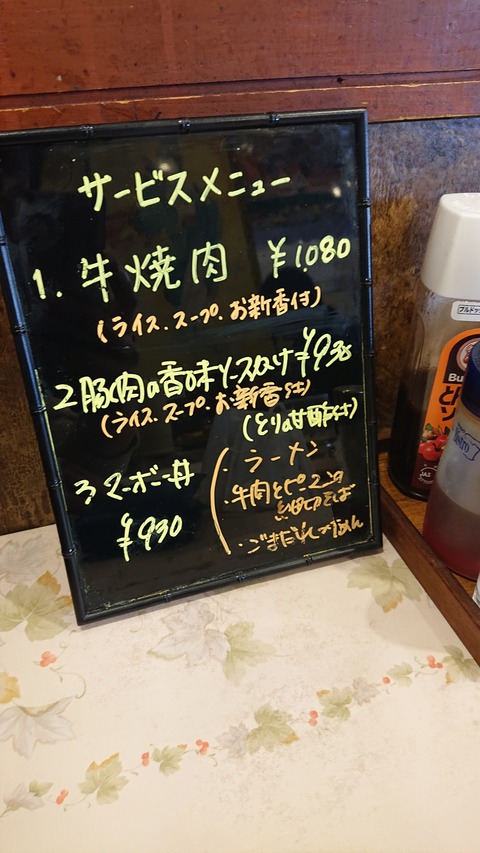 サービスメニュー
1. 牛焼肉 ¥1,080
(ライス.スープ.お新香付)
2豚肉の香味ソースかけ¥930
(ライス.スープ.お新香付)
(とりの甘酢付)
3 マーボー丼
¥930
・ラーメン
・牛肉とピーマンの
細切りそば
・ごまだれつけめん
ブルドッグ
Bu